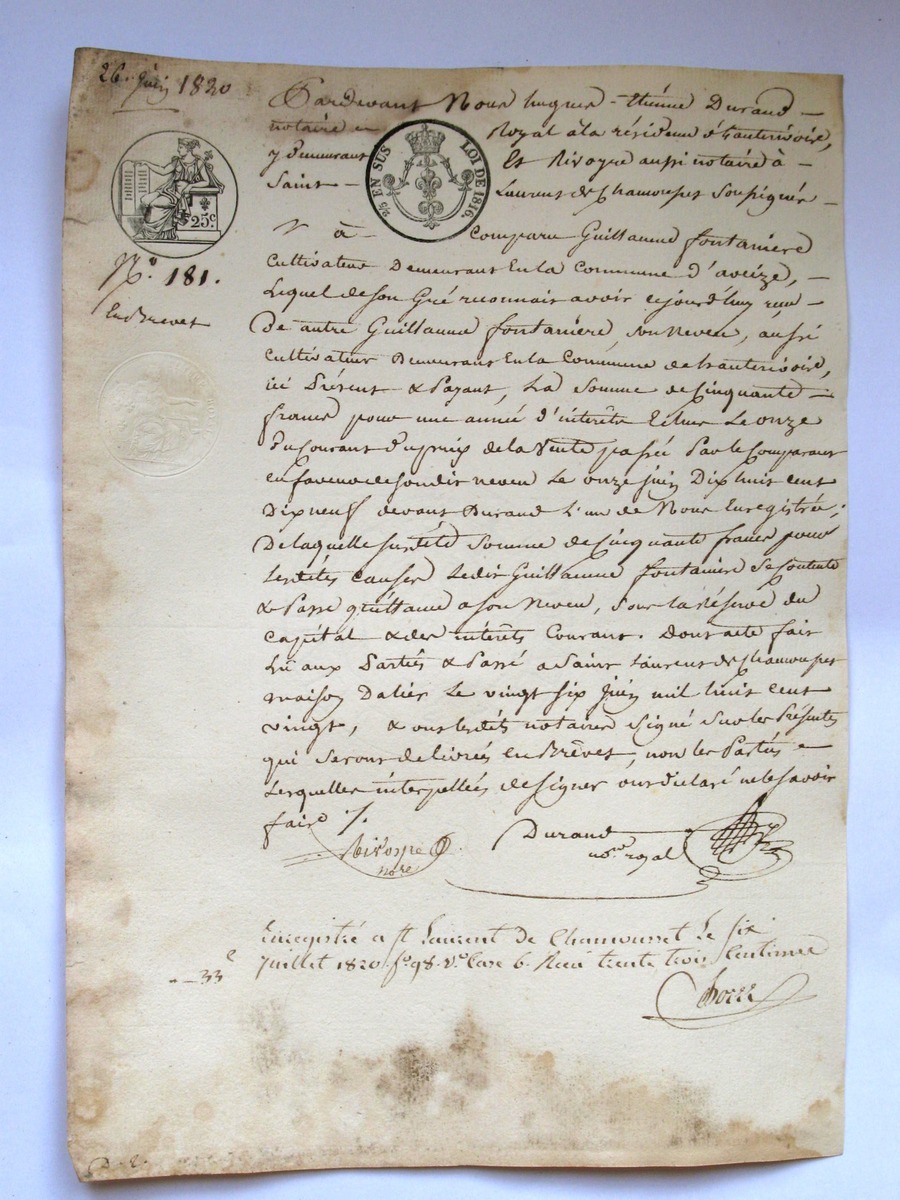 26 Juin 1820
Pardevant Nous hugues - Etiénne Durand -
notaire Royal à la résidence d'hauterivoire,
y demeurant Et Rivoyre aussi notaire à -
Saint - Laurent de Chamousset Soussignés -
25c.
2/5 EN SUS LOI DE 1816.
N° 181.
En Brevet
à - Comparu Guillaume fontaniere
cultivateur Demeurant En la Commune d'aveize, -
Lequel de son Gré reconnait avoir cejourd'huy reçu -
De autre Guillaume fontaniere, son Neveu, aussi
cultivateur Demeurant En la Commune de hauterivoire,
ici Présent & Payant, La Somme de Cinquante -
francs pour une année d'interêts Echue Le onze
Du Courant Du prix de la Vente passée Par le Comparant
en faveur de son dit neveu Le onze juin Dix huit cent
Dix neuf devant Durand L'un de Nous Enregistrée;
De laquelle susdite Somme de Cinquante francs pour
Lesdites causes Ledit Guillaume fontaniere Se Contente
& Passe quittance a son Neveu, Sous la Réserve du
Capital & des intérêts Courant. Dont acte fait
Lu aux Parties & Passé a Saint Laurent de Chamousset
maison Dalier Le vingt six juin mil huit cent
vingt, & ont lesdits notaires Signé Sur les Présentes
qui Seront delivrées en Brêvet, non les Parties -
Lesquelles interpellées de Signer ont déclaré ne le savoir
faire ./.
Rivoyre
nore
Durand
nore royal
Enregistré a St Laurent de Chamousset Le six
Juillet 1820 fo 98. Vo Case 6. Reçu trente trois Centimes
33c